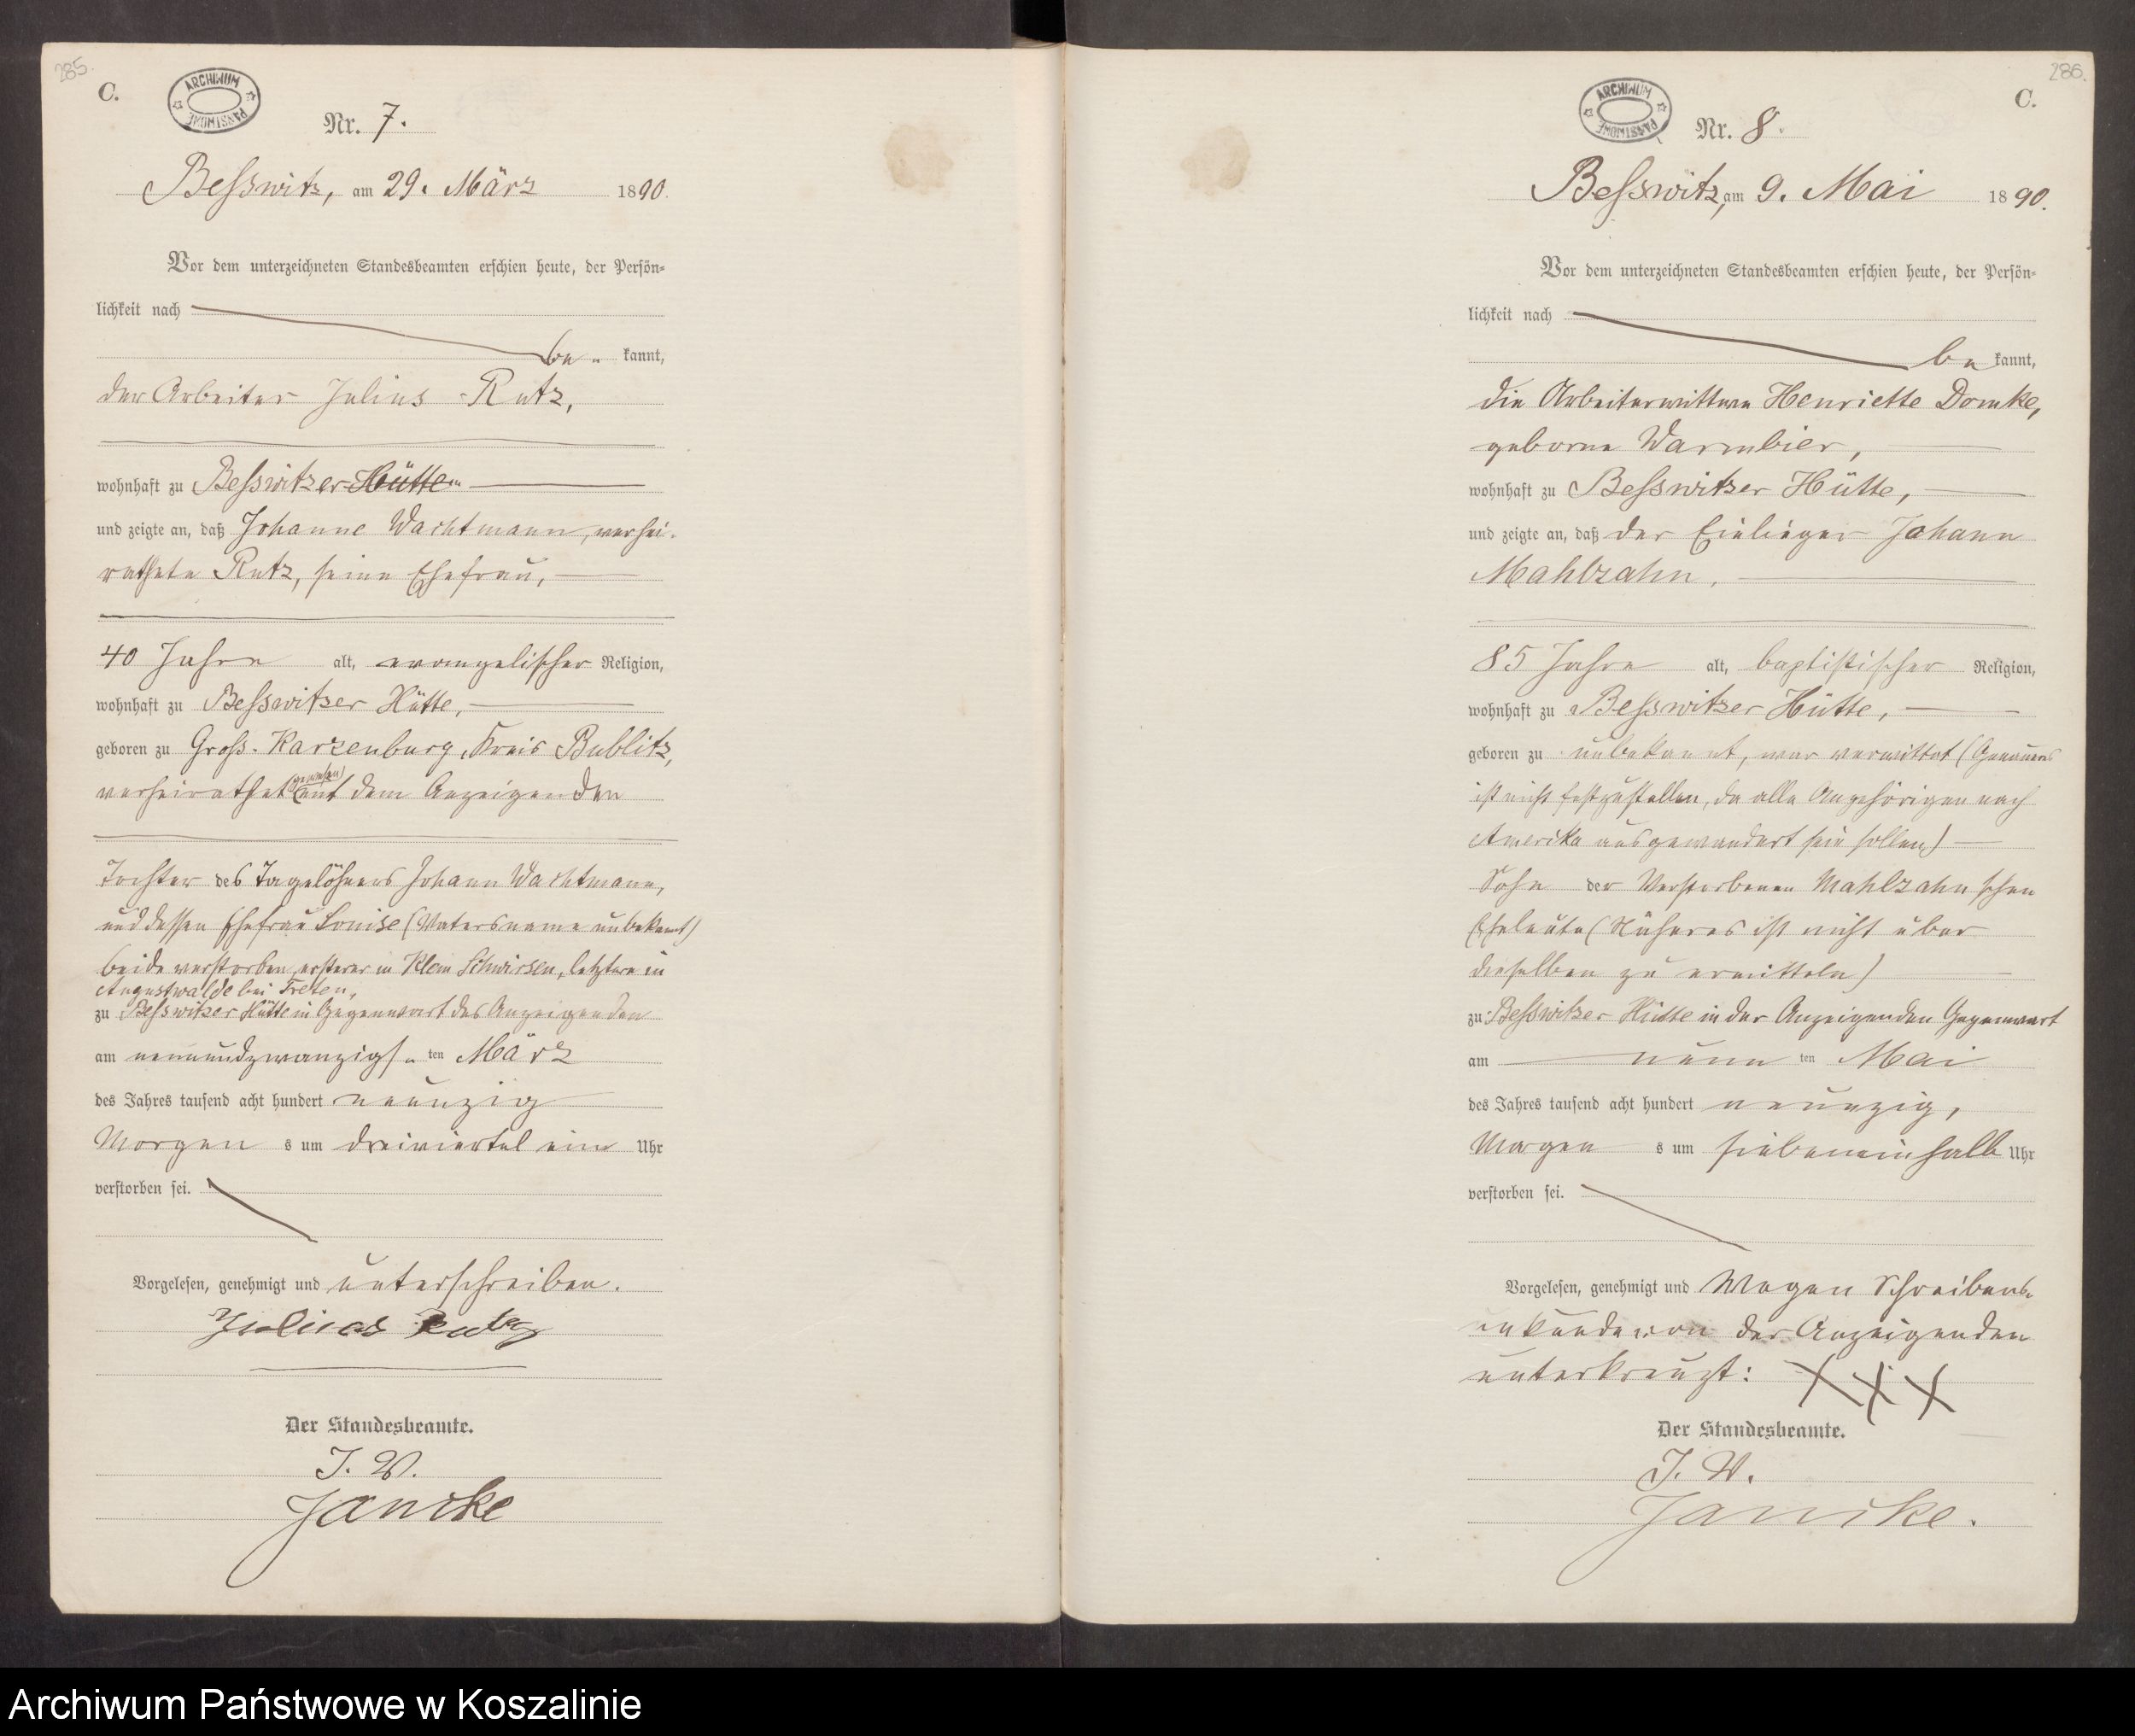 285.
C.
ARCHIWUM PAŃSTWOWE
Nr. 7.
Besswitz, am 29. März 1890.
Vor dem unterzeichneten Standesbeamten erschien heute, der Persön-
lichkeit nach
be- kannt,
der Arbeiter Julius Rutz,
wohnhaft zu Besswitzer Hütte
und zeigte an, daß Johanne Wachtmann, verhei-
rathete Rutz, seine Ehefrau,
40 Jahre alt, evangelischer Religion,
wohnhaft zu Besswitzer Hütte,
geboren zu Gross-Karzenburg, Kreis Bublitz,
verheirathet (gewesen) mit dem Anzeigenden
Tochter des Tagelöhners Johann Wachtmann,
und dessen Ehefrau Louise (Vatersname unbekannt)
beide verstorben, ersterer in Klein Schwirsen, letztere in
Augustwalde bei Treten,
zu Besswitzer Hütte in Gegenwart des Anzeigenden
am neunundzwanzigs-ten März
des Jahres tausend acht hundert neunzig
Morgen s um dreiviertel ein Uhr
verstorben sei.
Vorgelesen, genehmigt und unterschrieben.
Julius Rutz
Der Standesbeamte.
J. V.
Jancke
286.
C.
ARCHIWUM PAŃSTWOWE
Nr. 8.
Besswitz, am 9. Mai 1890.
Vor dem unterzeichneten Standesbeamten erschien heute, der Persön-
lichkeit nach
be kannt,
die Arbeiterwittwe Henriette Domke,
geborne Warmbier,
wohnhaft zu Besswitzer Hütte,
und zeigte an, daß der Einlieger Johann
Mahlzahn,
85 Jahre alt, baptistischer Religion,
wohnhaft zu Besswitzer Hütte,
geboren zu unbekannt, war verwittwet (Genaueres
ist nicht festzustellen, da alle Angehörigen nach
Amerika ausgewandert sein sollen)
Sohn der Verstorbenen Mahlzahn'schen
Eheleute (Näheres ist nicht über
dieselben zu ermitteln)
zu Besswitzer Hütte in der Anzeigenden Gegenwart
am neun ten Mai
des Jahres tausend acht hundert neunzig,
Morgen s um siebeneinhalb Uhr
verstorben sei.
Vorgelesen, genehmigt und Wegen Schreibens-
unkunde von der Anzeigenden
unterkreuzt: XXX
Der Standesbeamte.
J. V.
Jancke.
Archiwum Państwowe w Koszalinie